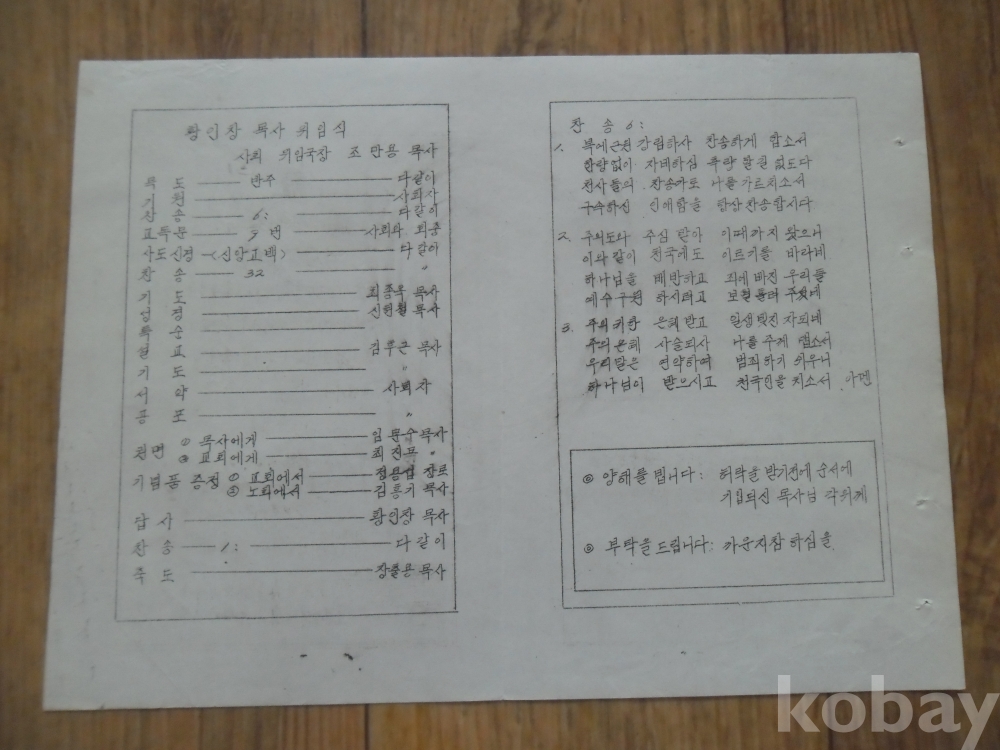 황인창 목사 위임식
사회 위임국장 조만용 목사
묵도 반주 다같이
기원 사회자
찬송 6: 다같이
교독문 9번 사회와 회중
사도신경 (신앙고백) 다같이
찬송 32 〃
기도 최종우 목사
성경 신현철 목사
특순
설교 김부근 목사
기도 〃
서약 사회자
공포 〃
권면 ① 목사에게 임문수 목사
② 교회에게 최진모 〃
기념품 증정 ① 교회에서 정용섭 장로
② 노회에서 김홍기 목사
답사 황인창 목사
찬송 1: 다같이
축도 장출용 목사
찬송 6:
1. 복에근원 강림하사 찬송하게 합소서
한량없이 자비하심 측량할길 없도다
천사들의 찬송가로 나를가르치소서
구속하신 인애함을 항상찬송합시다
2. 주의도와 주심 받아 이때까지 왔으니
이와같이 천국에도 이르기를 바라네
하나님을 배반하고 죄에빠진 우리를
예수구원 하시려고 보혈흘려 주셨네
3. 주의귀한 은혜받고 일생빚진 자되네
주의은혜 사슬되사 나를주께 맵소서
우리맘은 연약하여 범죄하기 쉬우니
하나님이 받으시고 천국인을 치소서 아멘
◎ 양해를 빕니다: 허락을 받기전에 순서에
기입되신 목사님 각위께
◎ 부탁을 드립니다: 까운지참 하심을
kobay